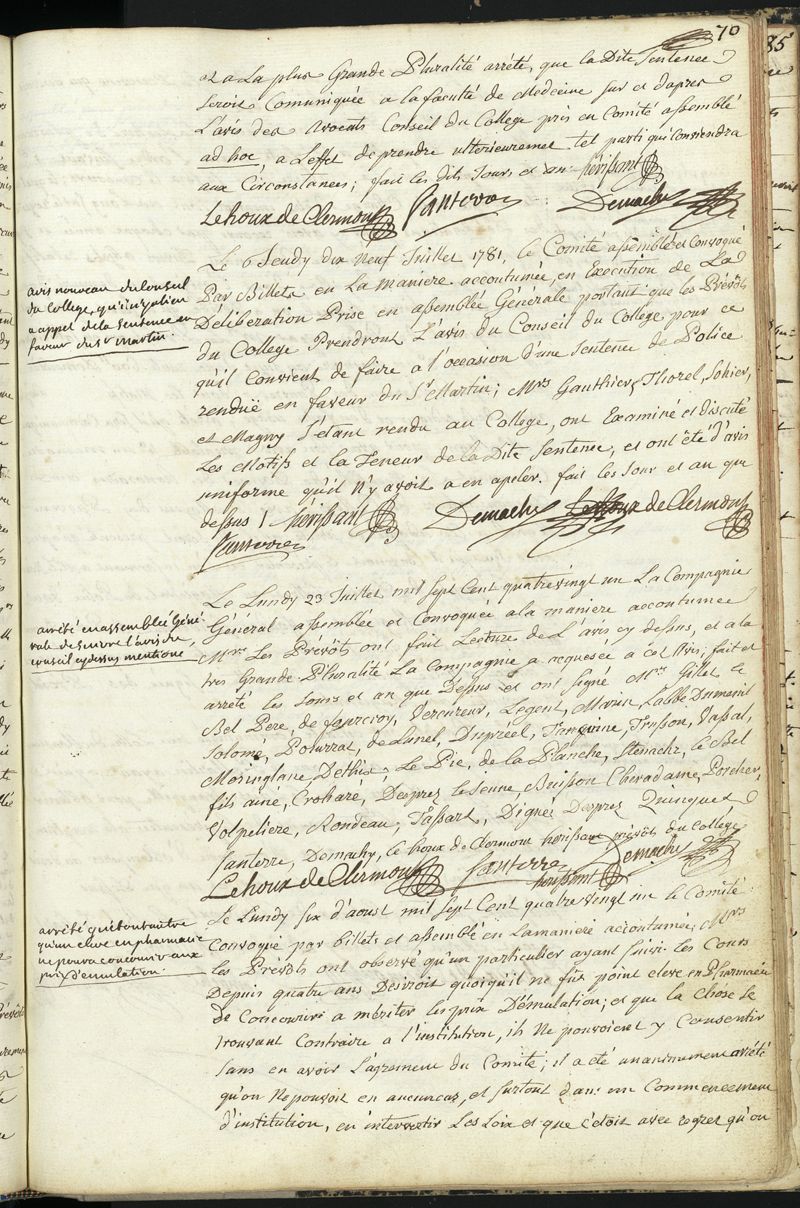 70
et a La plus Grande Pluralité arrêté, que la Dite Sentence
seroit Communiquée a la faculté de Medecine sur et dapres
L'avis des Avocats Conseil du College pris en Comité assemblé
ad hoc, a L'effet de prendre ulterieurement tel parti qui Conviendra
aux Circonstances; fait les dits Jours et an. hérissant
Lehoux de Clermont Santerre Demachy
avis nouveau du Conseil
du College, qu'il n'y a lieu
a appel de la Sentence en
faveur du Sr Martin.
Le Jeudy dix Neuf Juillet 1781, le Comité assemblé et Convoqué
Par Billets en La maniere accoutumée, en Execution de La
Déliberation Prise en assemblée Générale portant que les Prévôts
du College Prendront L'avis du Conseil du College pour ce
qu'il Convient de faire a l'occasion d'une Sentence de Police
renduë en faveur du Sr Martin; Mrs Gauthier, Thorel, Sohier,
et Magny S'étant rendu au College, ont Examiné et discuté
Les Motifs et la Teneur de la Dite Sentense, et ont été d'avis
uniforme qu'il N'y avoit a en apeler. fait les Jour et an que
dessus / hérissant Demachy Lehoux de Clermont
Santerre
arrêté en assemblée Géné-
rale de suivre l'avis du
conseil cy dessus mentioné
Le Lundy 23 Juillet mil Sept Cent quatrevingt un La Compagnie
Général assemblée et Convoquée a la maniere accoutumée
Mrs Les Prévôts ont fait Lecture de L'avis cy dessus, et a la
tres Grande Pluralité La Compagnie a acquescé a cet Avis; fait et
arrêté les Jours et an que Dessus et ont signé Mrs Gillet le
Bel Pere, de fourcroy, Vercureur, Legent, Marin, Labbé Dumenil
Solome, Pourrat, de Lunel, Dupréel, Trusson, Vassal,
Moringlane, Dethis, Le Pie, de la Planche, Stenacher, le Bel
fils ainé, Croharé, Despres le Jeune Buisson Cheradame, Porcher,
Volpeliere, Rondeau, Tassart, Digne, Despres Quinquet
Santerre, Demachy, Le houx de Clermont herissant prévôts du College
Lehoux de Clermont Santerre hérissant Demachy
arrêté qu'il tout autre
qu'un eleve en pharmacie
ne pourra concourir aux
prix d'emulation.
Le Lundy six d'aoust mil Sept Cent quatre vingt un le Comité
Convoqué par billets et assemblé en La maniere accoutumée, Mrs
les Prévôts ont observé qu'un particulier ayant suivi les Cours
Depuis quatre ans Desiroit quoiqu'il ne fut point eleve en Pharmacie
de Concourir a mériter les prix Démulation; et que la chose se
trouvant Contraire a l'institution, ils Ne pouvoient y Consentir
sans en avoir Lagrement du Comité; il a été unanimement arrêté
qu'on Ne pouvoit en aucun cas, et surtout dans un Commencement
d'institution, en intervertir Les Loix et que c'étoit avec regret qu'on